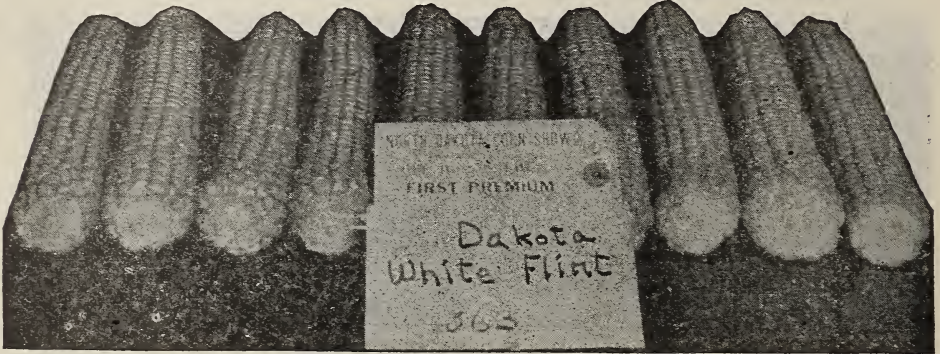 NORTH DAKOTA CORN SHOW
FIRST PREMIUM
Dakota
White Flint
363